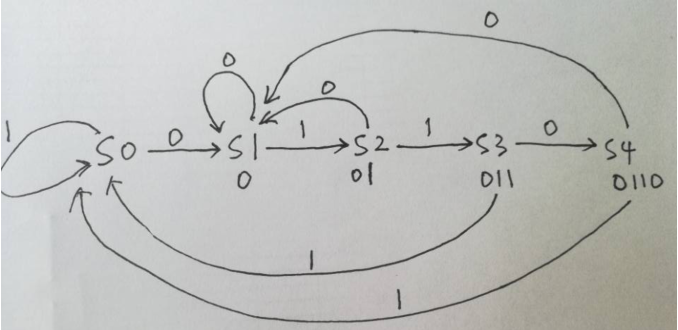 0
0
0
1
S0 0 S1 1 S2 1 S3 0 S4
0 01 011 0110
1
1